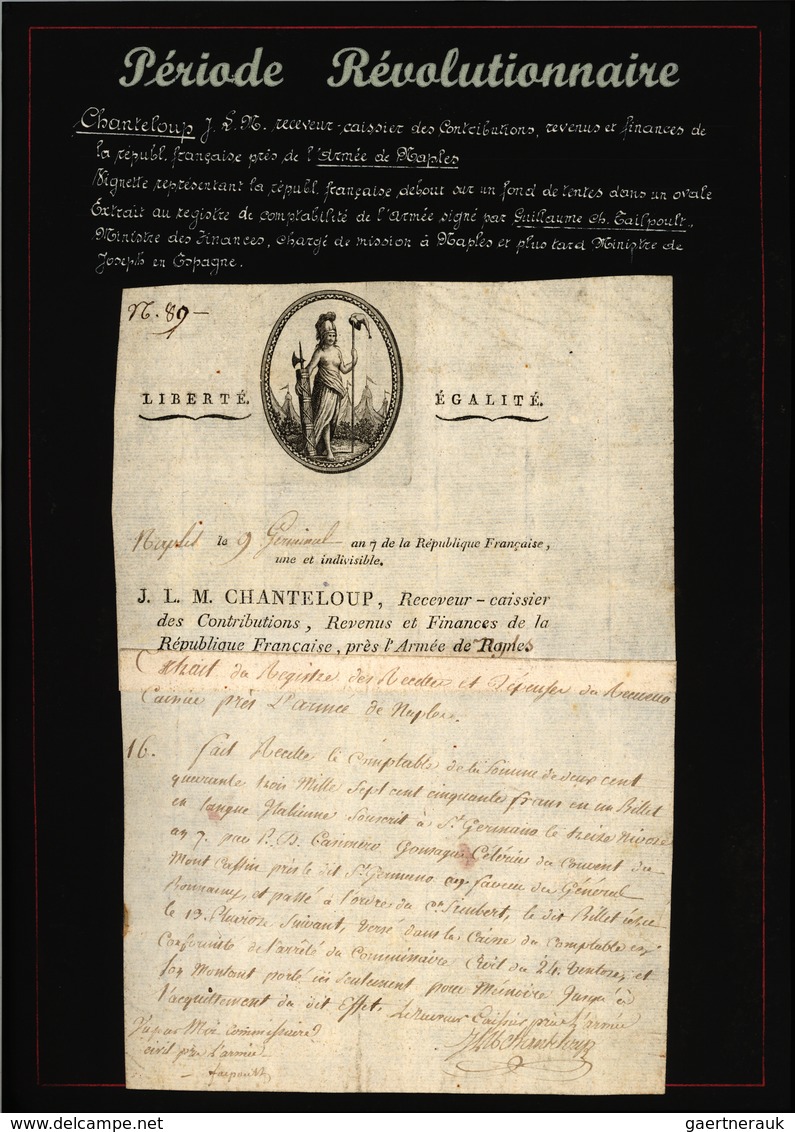 Période Révolutionnaire
Chanteloup J. L. M. receveur-caissier des Contributions, revenus et finances de
la républ. française près de l'Armée de Naples
Vignette représentant la républ. française, debout sur un fond de tentes dans un ovale
Extrait au registre de comptabilité de l'Armée signé par Guillaume Ch. Failpoult.,
Ministre des Finances, chargé de mission à Naples et plus tard Ministre de
Joseph en Espagne.
N. 89 —
LIBERTÉ.
ÉGALITÉ.
Naples le 9 Germinal an 7 de la République Française,
une et indivisible.
J. L. M. CHANTELOUP, Receveur-caissier
des Contributions, Revenus et Finances de la
République Française, près l'Armée de Naples
Extrait du Registre des Recettes et Dépenses du Receveur
Caissier près L'armée de Naples.
16. fait Recette le Comptable de la Somme de deux cent
quarante trois Mille Sept cent cinquante francs en un Billet
en langue Italienne Souscrit à St. Germano le treize Nivose
an 7. par P. D. Casimiro Gonzague Celérier du Couvent du
Mont Cassin près le dit St. Germano en faveur du Général
et passé à l'ordre du le dit Billet
le 13 Pluviose Suivant, versé dans la Caisse du Comptable en
Conformité de l'arrêté du Commissaire Civil du 24. Ventose, et
son Montant porté ici Seulement pour Mémoire Jusqu'à
l'acquittement du dit Effet. Le Receveur Caissier près L'armée
JLM Chanteloup
Vu par Moi Commissaire
civil près L'armée
faipoult
gaertnerauk